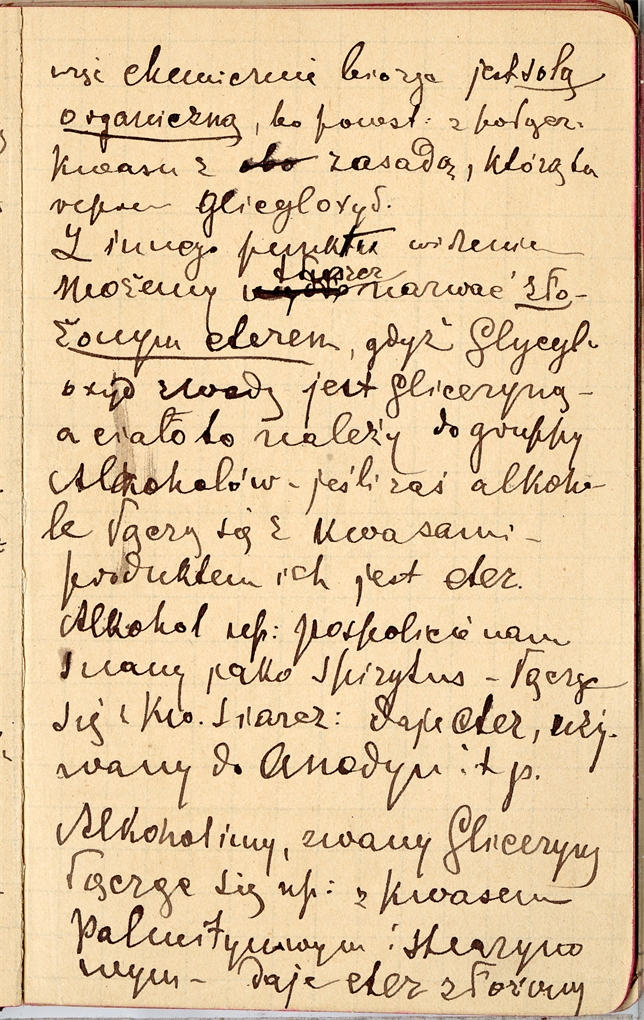 więc chemicznie biorąc jest solą
organiczną, bo powst: z połącz:
kwasu z zasadą, którą tu
reprez Gliegloxyd.
Z innego punktu widzenia
możemy tłuszcz nazwać zło-
żonym eterem, gdyż Glycyl-
oxyd z wodą jest gliceryną -
a ciało to należy do gruppy
Alkoholów - jeśli zaś alkoho-
le łączą się z kwasami -
produktem ich jest eter.
Alkohol np: pospolicie nam
znany jako Spirytus - łącząc
się z kw. siarcz: daje eter, uży-
wany do Anodyn i t p.
Alkohol inny, zwany Gliceryną
łącząc się np: z kwasem
Palmitynowym i stearyno
wym - daje eter złożony